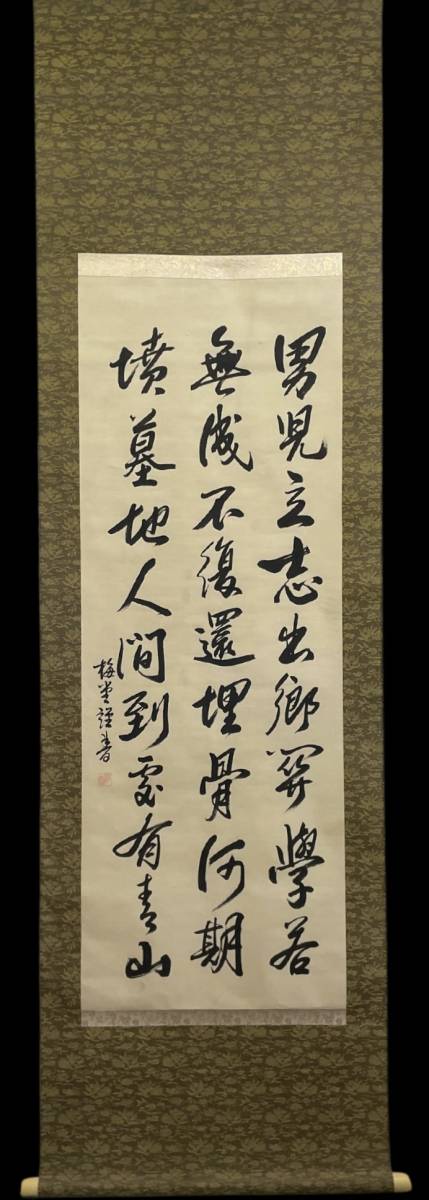 男児立志出郷関學若
無成不復還埋骨何期
墳墓地人間到處有青山
梅堂謹書